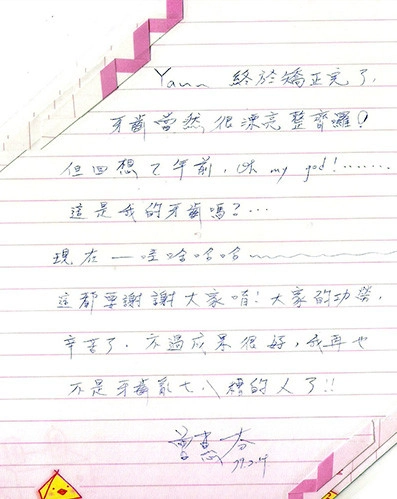 Yann 終於矯正完了,
牙齒當然很漂亮整齊囉!
但回想2年前,oh my god!.......
這是我的牙齒嗎?...
現在一哇哈哈哈~~~
這都要謝謝大家唷!大家的功勞,
辛苦了.不過成果很好,我再也
不是牙齒亂七八糟的人了!!